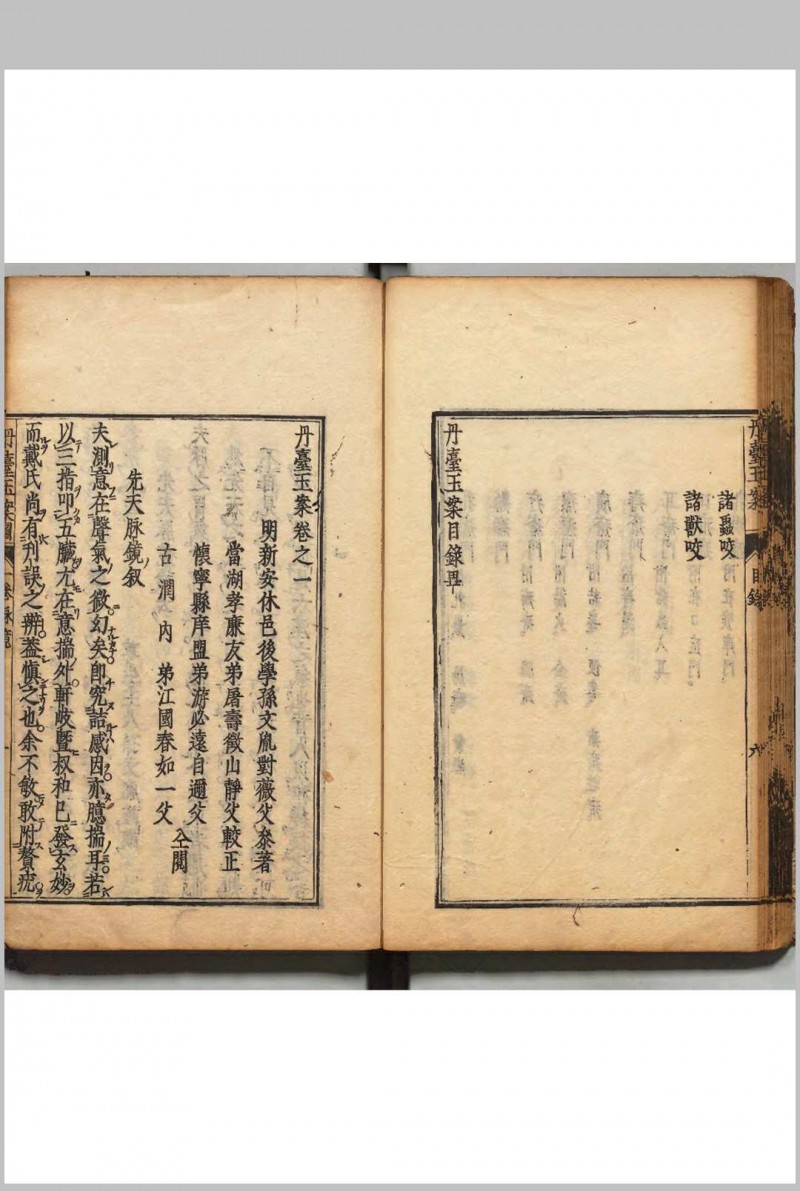 丹臺玉案
目錄
六
諸蟲咬
諸獸咬
丹臺玉案目錄畢
丹臺玉案卷之一
明新安休邑後學孫文胤對薇父叅著
當湖孝廉友弟屠壽徵山靜父較正
懷寧縣庠盟弟游必遠自邇父
古潤內弟江國春如一父
仝閱
先天脉鏡叙
夫測意在聲氣之微幻矣卽究詰感因亦臆揣耳若
以三指叩五臟尤在意揣外軒岐曁叔和已發玄妙
而戴氏尚有刋誤之辨葢愼之也余不敏敢附贅疣
丹臺玉案
一卷脉鏡
一